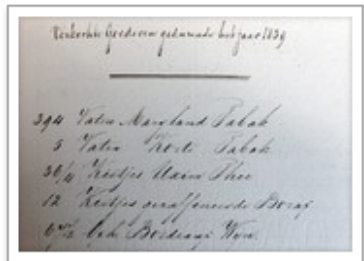 Verkochte Goederen gedurende het jaar 1839
394 Vaten Maryland Tabak
5 Vaten Korte Tabak
Kistjes Thee
12 Kistjes geraffineerde Borax
Bordeaux Wyn.